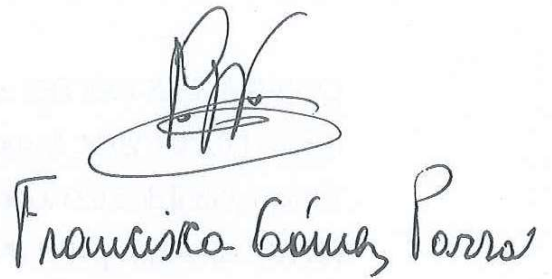 Franciska Gómez Parra